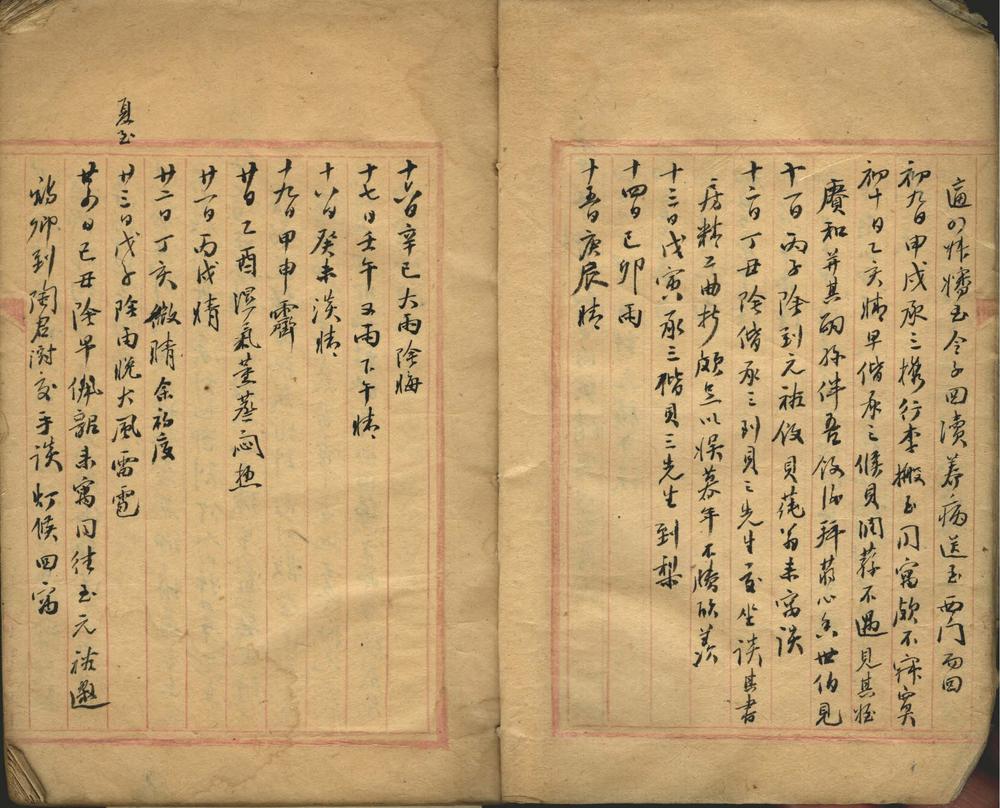 適以炸燔玉令子回瀆養病送至西门而回
初九日甲戌承三搬行李搬至同寓頗不寂寞
初十日乙亥晴早偕承之候貝潤蓀不遇見其姪
賡和并其嗣孫伴吾飯後拜蔣心香世伯見
十一日丙子陰到元祐飯貝蓴翁来寓談
十二日丁丑陰偕承三到貝三先生處坐談其書
房精工曲折頗足以娱暮年不勝欣羡
十三日戊寅承三楷貝三先生到梨
十四日己卯雨
十五日庚辰晴
十六日辛巳大雨陰晦
十七日壬午又雨下午晴
十八日癸未淡晴
十九日甲申霽
廿日乙酉濕氣薰蒸闷热
廿一日丙戌晴
廿二日丁亥微晴余初度
夏至
廿三日戊子陰雨晚大風雷雹
廿四日己丑陰早佩韶来寓同往玉元祐邀
初卿到陶君澍處手談灯候回寓